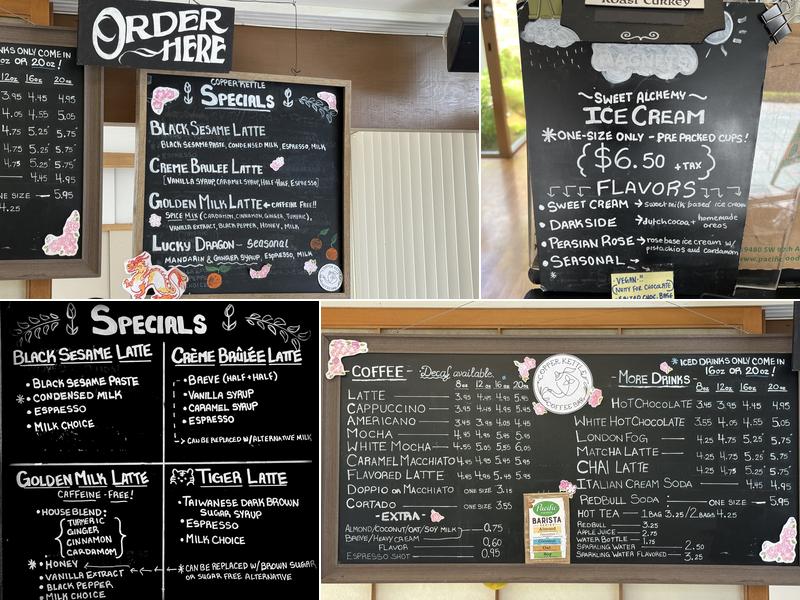 ORDER
HERE
NKS ONLY COME IN
OR 20oz!
12oz 16oz 20oz
3.95 4.45 4.95
4.45 4.95
4.75 5.25 5.75
4.75 5.25 5.75
4.75 5.25 5.75
4.45 4.95
NE SIZE — 5.95
4.25
COPPER KETTLE
SPECIALS
BLACK SESAME LATTE
BLACK SESAME PASTE, CONDENSED MILK, ESPRESSO, MILK
CREME BRULEE LATTE
[VANILLA SYRUP, CARAMEL SYRUP, HALF+HALF, ESPRESSO]
GOLDEN MILK LATTE ← CAFFEINE FREE!!
SPICE MIX (CARDAMOM, CINNAMON, GINGER, TUMERIC),
VANILLA EXTRACT, BLACK PEPPER, HONEY, MILK
LUCKY DRAGON - seasonal
MANDARIN & GINGER SYRUP, ESPRESSO, MILK
ROAST TURKEY
MAGNETS
~ SWEET ALCHEMY ~
ICE CREAM
*ONE-SIZE ONLY - PRE PACKED CUPS!
{$6.50 + TAX}
FLAVORS
• SWEET CREAM → sweet milk based ice cream
• DARKSIDE → dutch cocoa + homemade
oreos
• PERSIAN ROSE → rose base ice cream w/
pistachios and cardamom
• SEASONAL →
*
- VEGAN -"
(NUTTY FOR CHOCOLATE)
- SALTED CHOC. BASE
9480 SW
www.pacificfood
SPECIALS
BLACK SESAME LATTE
• BLACK SESAME PASTE
* • CONDENSED MILK
• ESPRESSO
• MILK CHOICE
CRÈME BRÛLÉE LATTE
• BREVE (HALF + HALF)
• VANILLA SYRUP
• CARAMEL SYRUP
• ESPRESSO
↳ CAN BE REPLACED W/ALTERNATIVE MILK
GOLDEN MILK LATTE
CAFFEINE - FREE!
• HOUSE BLEND:
{TUMERIC
GINGER
CINNAMON
CARDAMOM}
* • HONEY
• VANILLA EXTRACT
• BLACK PEPPER
• MILK CHOICE
TIGER LATTE
• TAIWANESE DARK BROWN
SUGAR SYRUP
• ESPRESSO
• MILK CHOICE
* CAN BE REPLACED W/ BROWN SUGAR
OR SUGAR FREE ALTERNATIVE
COFFEE - Decaf available
8oz 12oz 16oz 20oz
LATTE — 3.95 4.45 4.95 5.45
CAPPUCCINO — 3.95 4.45 4.95 5.45
AMERICANO — 3.45 3.95 4.45 4.95
MOCHA — 4.45 4.95 5.45 5.95
WHITE MOCHA — 4.55 5.05 5.55 6.05
CARAMEL MACCHIATO 4.45 4.95 5.45 5.95
FLAVORED LATTE 4.45 4.95 5.45 5.95
DOPPIO OR MACCHIATO ONE SIZE 3.15
CORTADO — ONE SIZE 3.55
- EXTRA -
ALMOND/COCONUT/OAT/SOY MILK
BREVE/HEAVY CREAM — 0.75
FLAVOR — 0.60
ESPRESSO SHOT — 0.95
COPPER KETTLE
COFFEE BAR
Pacific
BARISTA
SERIES
Almond
Coconut
Oat
Soy
*ICED DRINKS ONLY COME IN
16oz OR 20oz!
- MORE DRINKS -
8oz 12oz 16oz 20oz
HOT CHOCOLATE 3.45 3.95 4.45 4.95
WHITE HOT CHOCOLATE 3.55 4.05 4.55 5.05
LONDON FOG — 4.25 4.75 5.25 5.75
MATCHA LATTE — 4.25 4.75 5.25 5.75
CHAI LATTE — 4.25 4.75 5.25 5.75
ITALIAN CREAM SODA — 4.45 4.95
REDBULL SODA — ONE SIZE — 5.95
HOT TEA — 1 BAG 3.25 / 2 BAGS 4.25
REDBULL — 3.25
APPLE JUICE — 2.75
WATER BOTTLE — 1.75
SPARKLING WATER — 2.50
SPARKLING WATER FLAVORED — 3.25